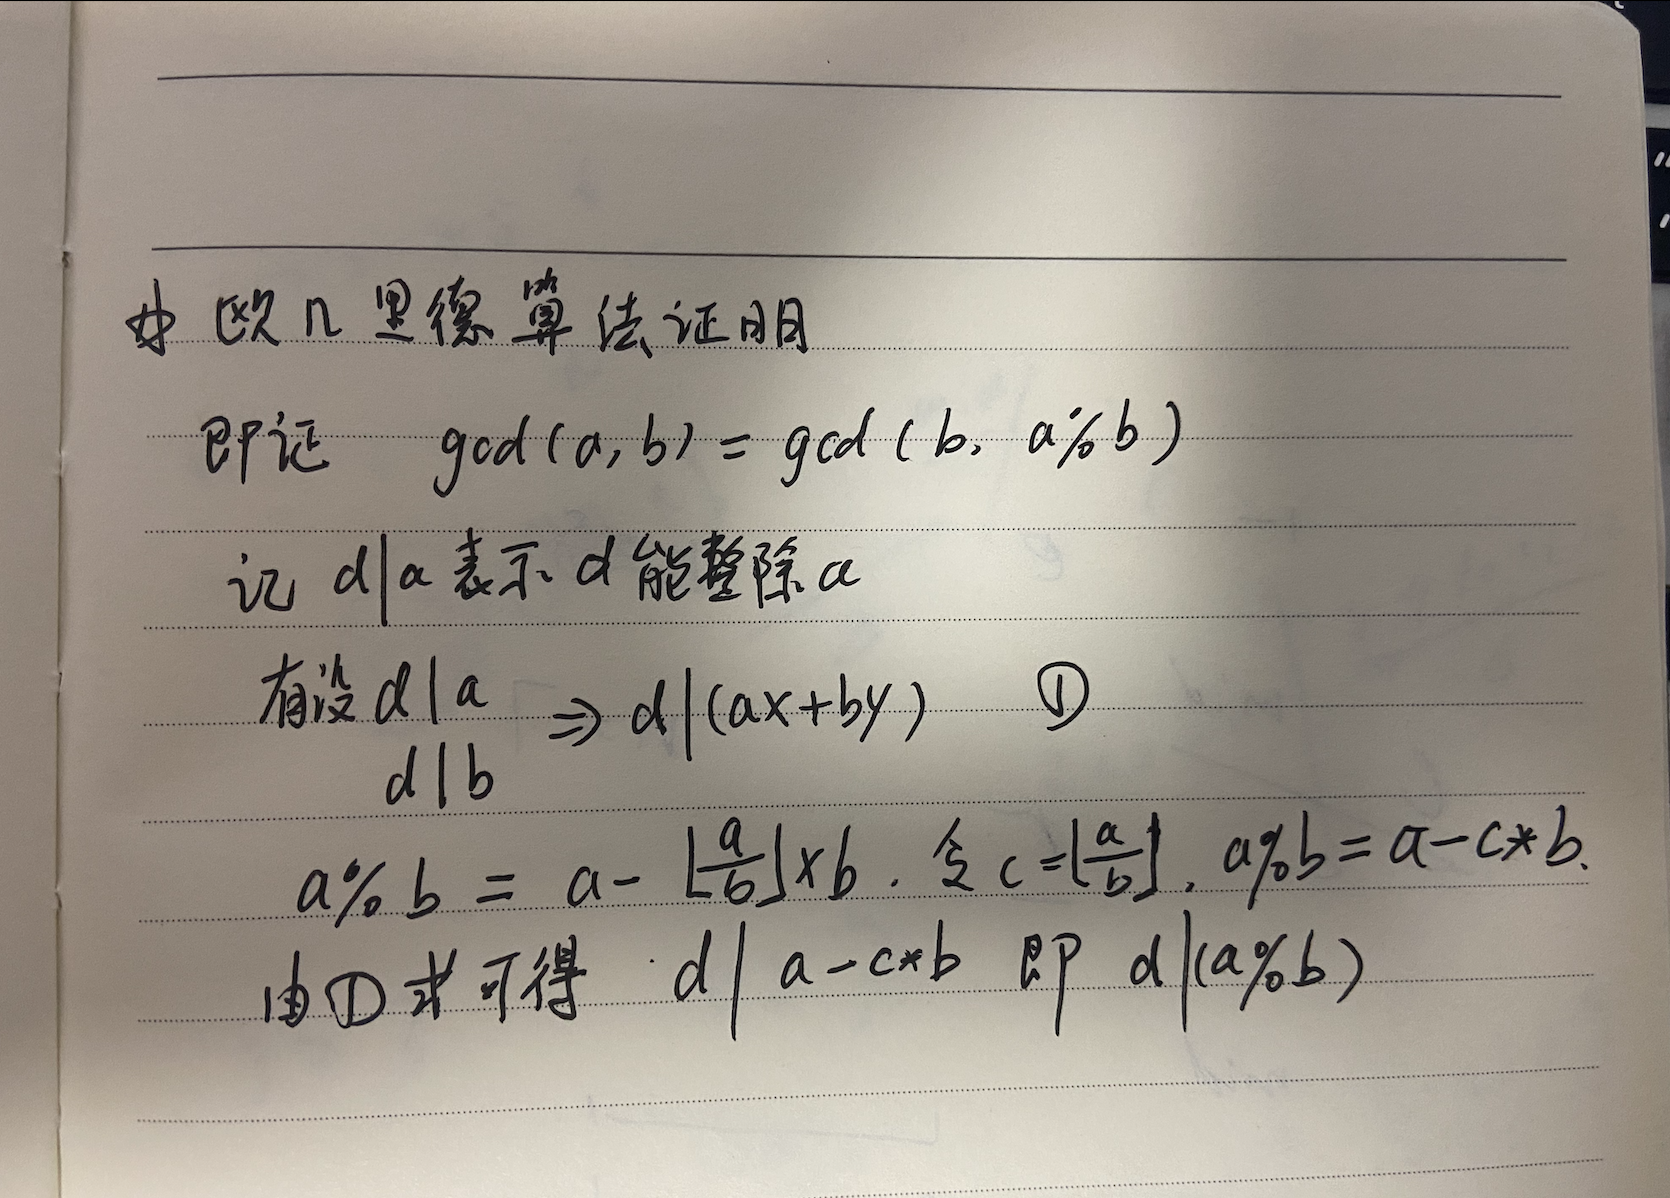 # 欧几里德算法证明
即证 gcd(a, b) = gcd(b, a%b)
记 d|a 表示 d 能整除 a
有设 d|a ⇒ d|(ax+by) ①
d|b
a%b = a - ⌊a/b⌋×b . 令 c=⌊a/b⌋, a%b = a-c*b.
由①式可得 d| a-c*b 即 d|(a%b)